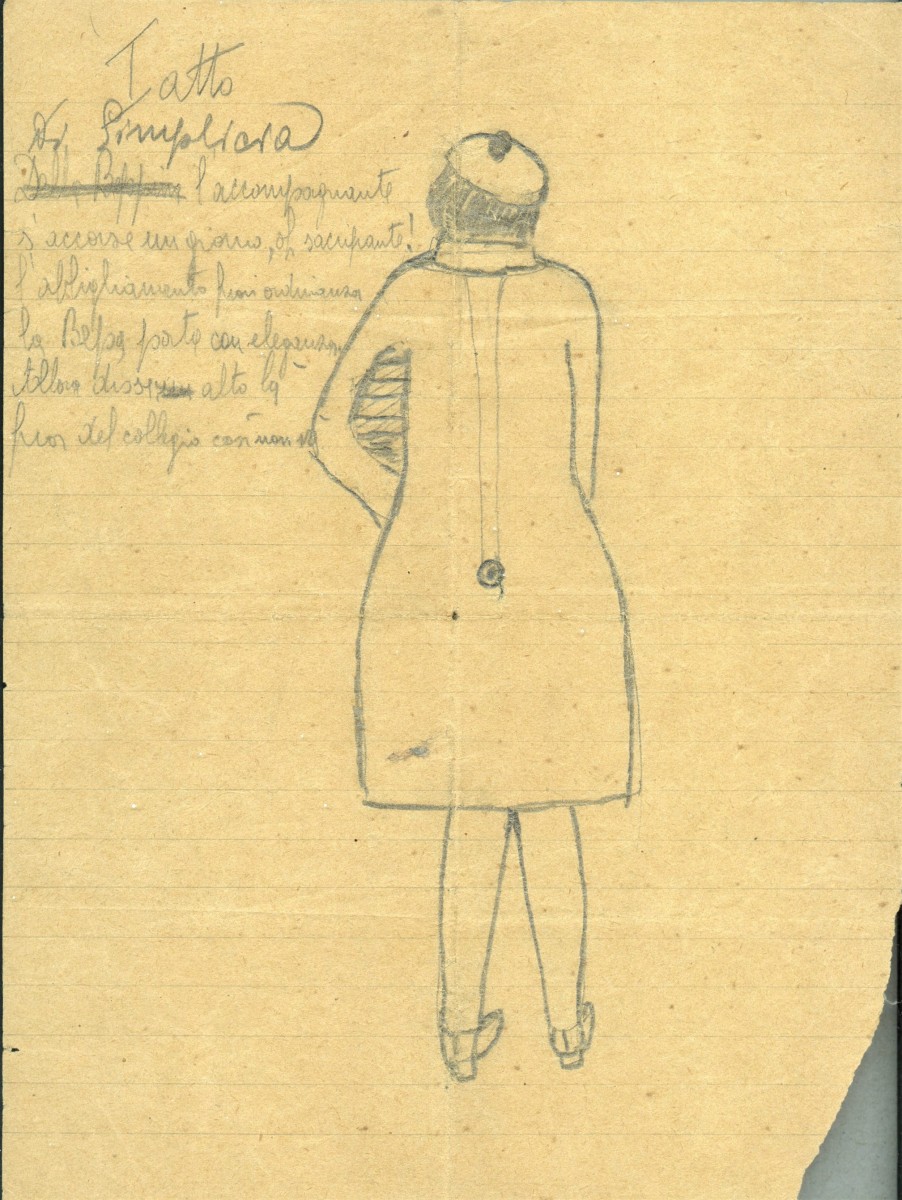 Tatto
di Simplicia
Dalla Beppina l'accompagnante
s'accorse un giorno, oh saccupante!
l'abbigliamento fuori ordinanza
la Beppa porta con eleganza
Allora disse alto là
fuor del collegio così non